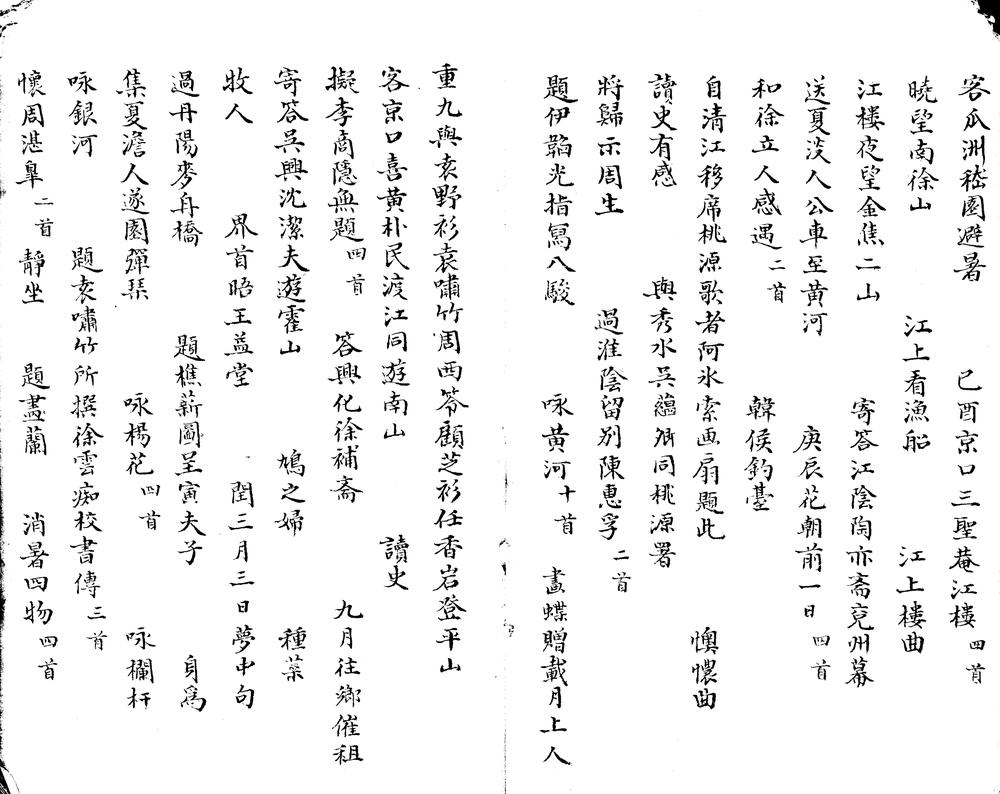 客瓜洲嵇園避暑 己酉京口三聖菴江樓四首
曉望南徐山 江上看漁船 江上樓曲
江楼夜望金焦二山 寄答江陰陶亦斎兗州幕
送夏茨人公車至黄河 庚辰花朝前一日四首
和徐立人感遇二首 韓侯釣臺
自清江移席桃源歌者阿氷索画扇題此 懊憹曲
讀史有感 與秀水吴蘊斯同桃源署
將歸示周生 過淮陰留別陳惠孚二首
題伊韜光指寫八駿 咏黄河十首 畫蝶贈載月上人
重九與袁野衫袁嘯竹周西笭顧芝衫任香岩登平山
客京口喜黄朴民渡江同遊南山 讀史
擬李商隱無題四首 答興化徐補斋 九月往鄉催租
寄答吴興沈潔夫遊霍山 鳩之婦 種菜
牧人 界首晤王益堂 閏三月三日夢中句
過丹陽麥舟橋 題樵薪圖呈寅夫子 身為
集夏澹人遂園彈琹 咏楊花四首 咏欄杆
咏銀河 題袁嘯竹所撰徐雲痴校書傳三首
懷周湛臯二首 靜坐 題畫蘭 消暑四物四首